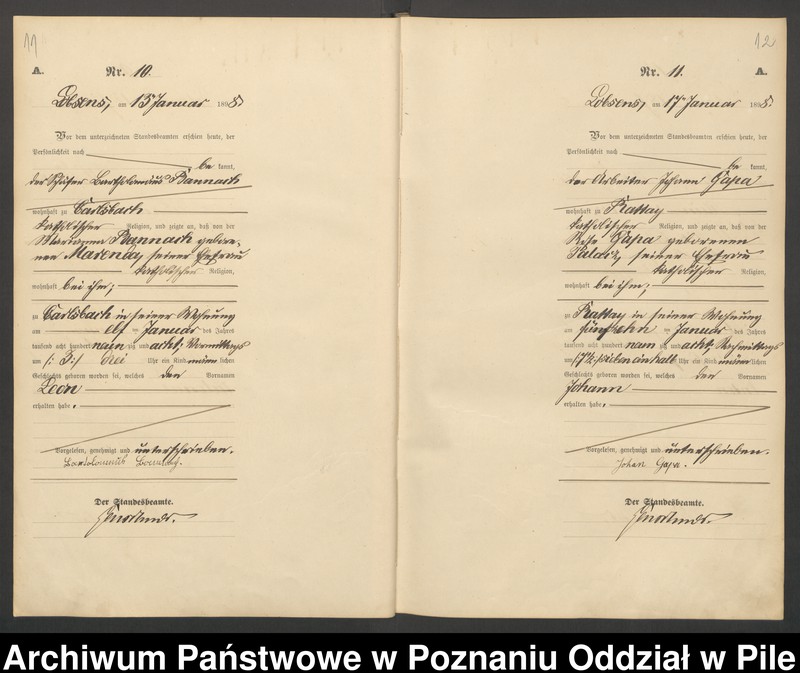 11
A.
Nr. 10.
Lobsens, am 13 Januar 1898.
Vor dem unterzeichneten Standesbeamten erschien heute, der
Persönlichkeit nach
be kannt,
der Schäfer Bartholomäus Bannach
wohnhaft zu Carlsbach
katholischer Religion, und zeigte an, daß von der
Marianna Bannach gebore-
nen Marenda, seiner Ehefrau
katholischer Religion,
wohnhaft bei ihm;
zu Carlsbach in seiner Wohnung
am elf ten Januar des Jahres
tausend acht hundert neun zig und acht, Vormittags
um (: 3 :) drei Uhr ein Kind männ lichen
Geschlechts geboren worden sei, welches den Vornamen
Leon
erhalten habe.
Vorgelesen, genehmigt und unterschrieben.
Der Standesbeamte.
12
Nr. 11.
A.
Lobsens, am 17 Januar 1898.
Vor dem unterzeichneten Standesbeamten erschien heute, der
Persönlichkeit nach
be kannt,
der Arbeiter Johann Gapa
wohnhaft zu Rattay
katholischer Religion, und zeigte an, daß von der
Gapa geborenen
seiner Ehefrau
katholischer Religion,
wohnhaft bei ihm;
zu Rattay in seiner Wohnung
am fünfzehn ten Januar des Jahres
tausend acht hundert neun zig und acht, Nachmittags
um (: 7½ :) sieben einhalb Uhr ein Kind männ lichen
Geschlechts geboren worden sei, welches den Vornamen
Johann
erhalten habe.
Vorgelesen, genehmigt und unterschrieben.
Johan Gapa.
Der Standesbeamte.
Archiwum Państwowe w Poznaniu Oddział w Pile